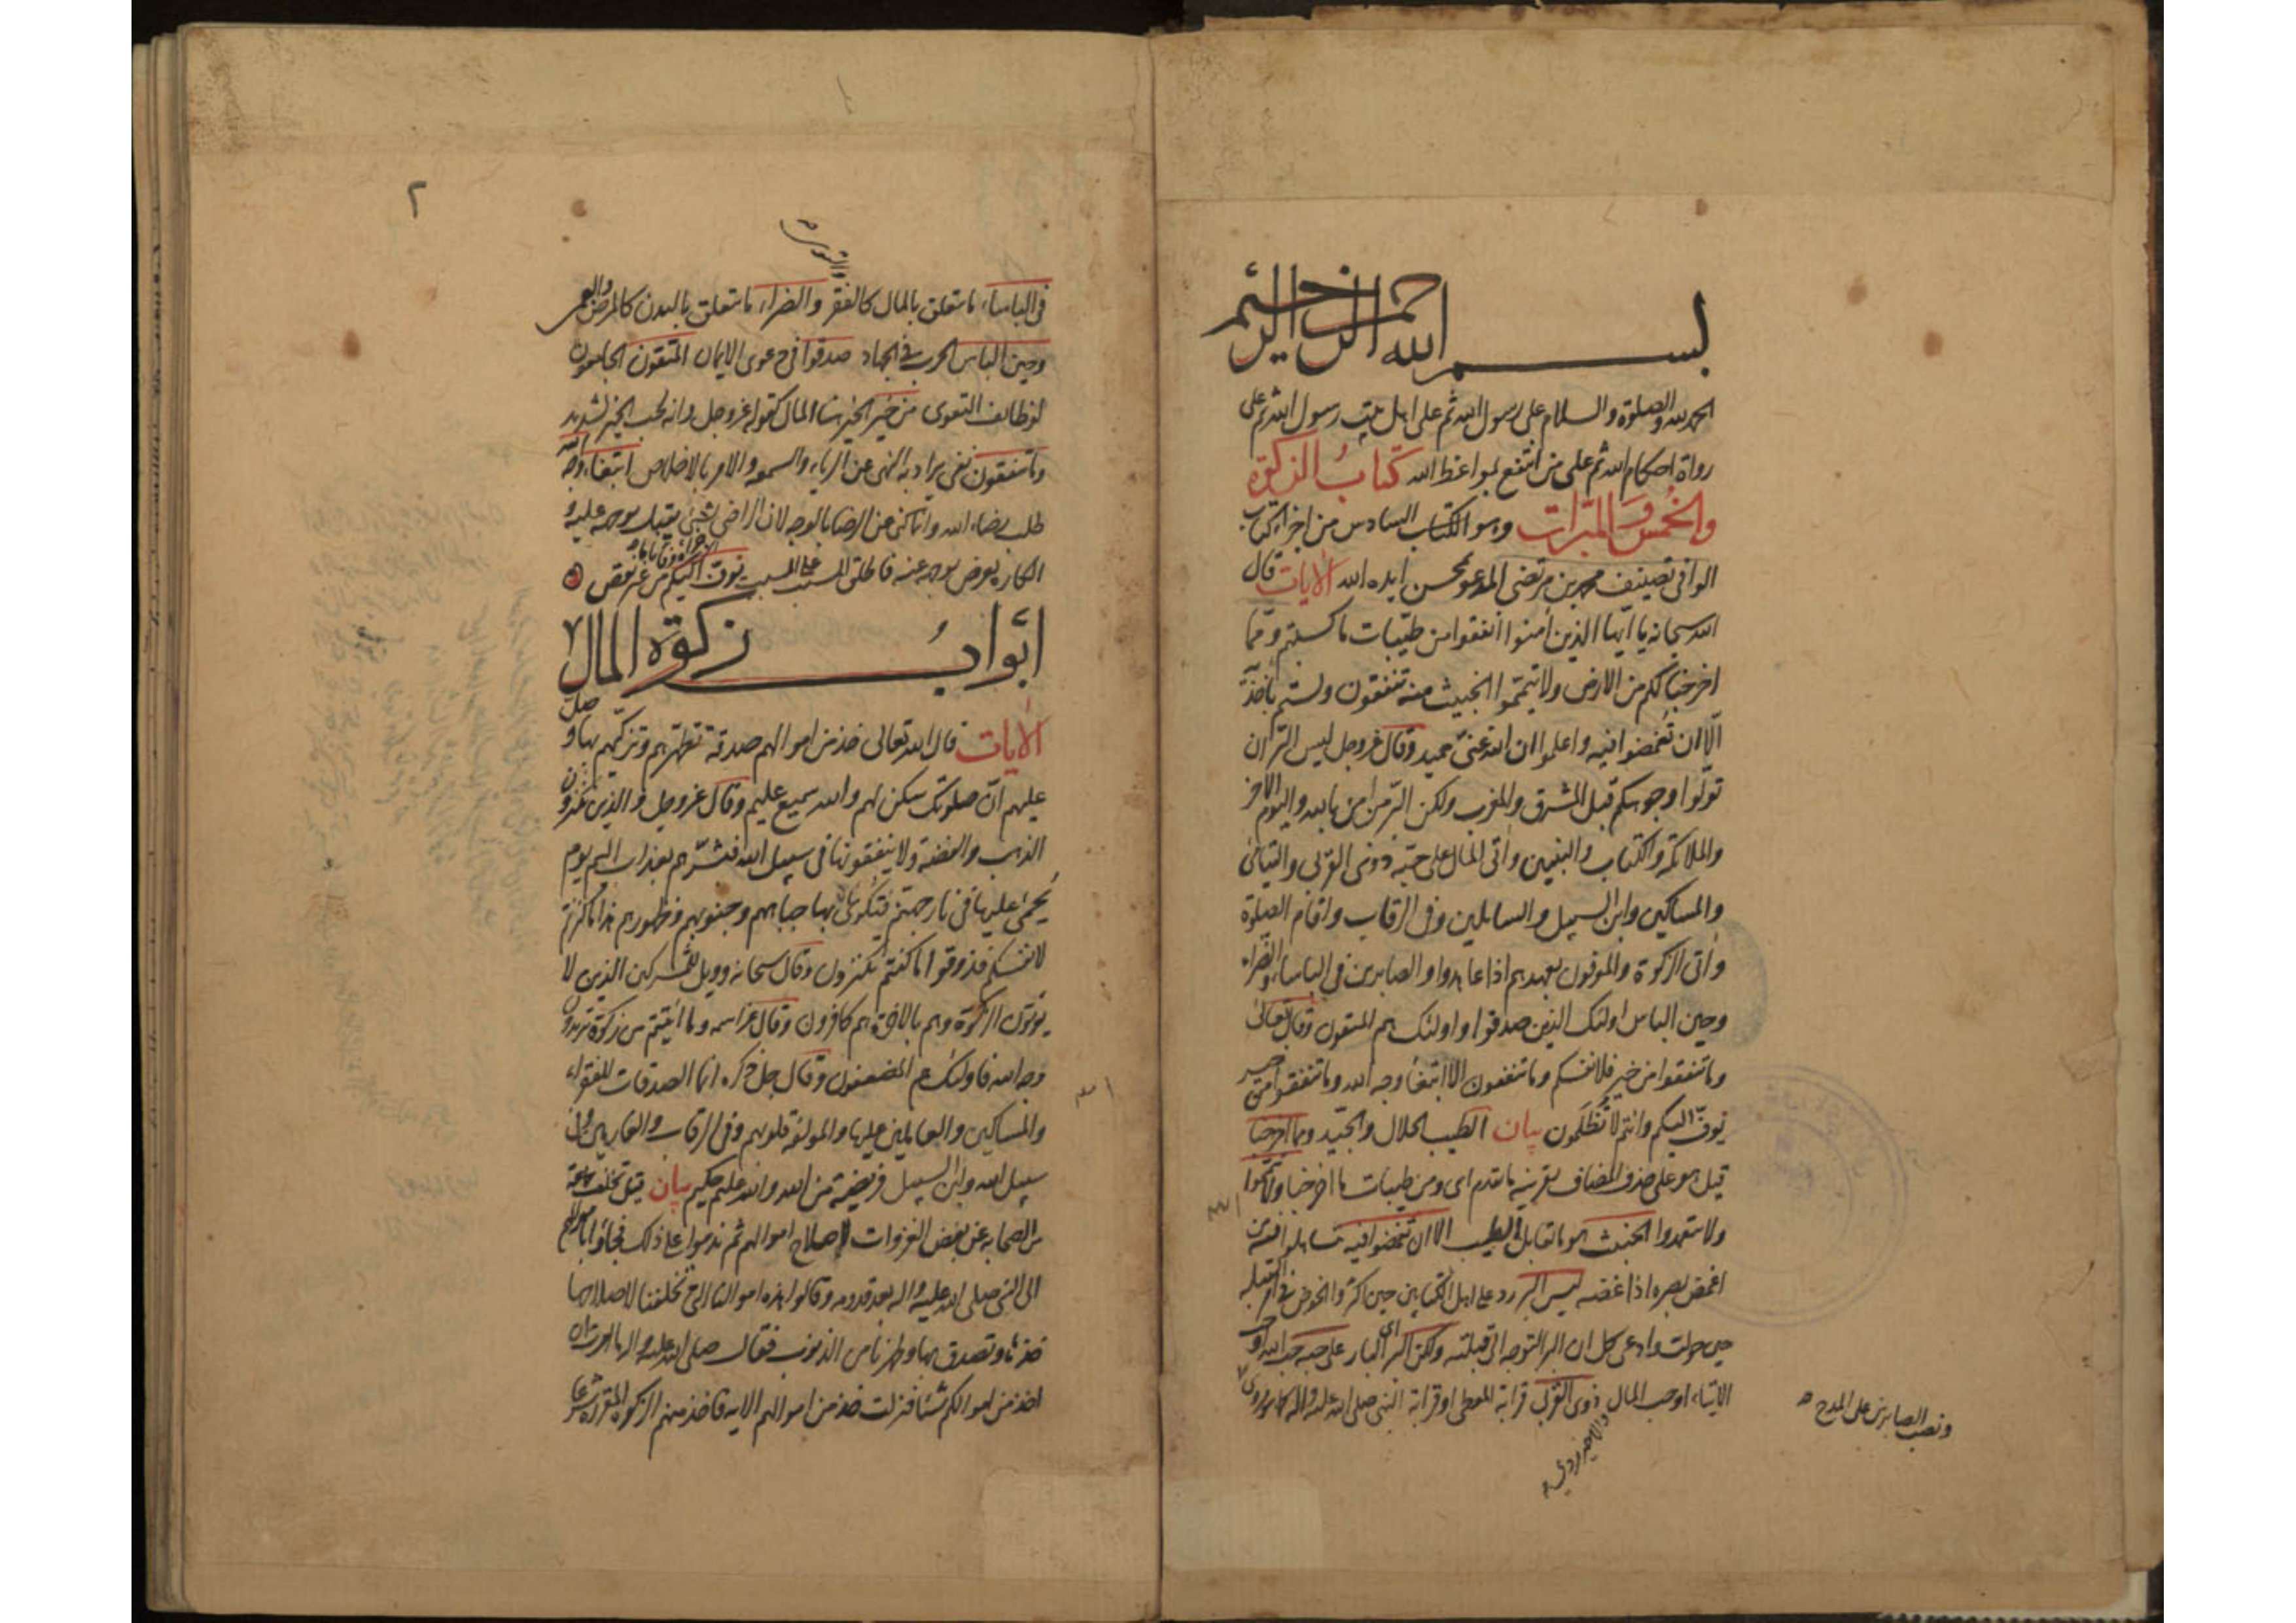 بسم الله الرحمن الرحيم
الحمد لله والصلوة والسلام على رسول الله ثم على اهل بيت رسول الله ثم على
رواة احكام الله ثم على من انتفع بمواعظ الله كتاب الزكوة
والخمس والمبرات وهو الكتاب السادس من اجزاء كتاب
الوافي تصنيف محمد بن مرتضى المدعو بمحسن ايده الله الآيات قال
الله سبحانه يا ايها الذين آمنوا انفقوا من طيبات ما كسبتم ومما
اخرجنا لكم من الارض ولا تيمموا الخبيث منه تنفقون ولستم بآخذيه
الا ان تغمضوا فيه واعلموا ان الله غني حميد وقال عز وجل ليس البر ان
تولوا وجوهكم قبل المشرق والمغرب ولكن البر من امن بالله واليوم الاخر
والملائكة والكتاب والنبيين وآتى المال على حبه ذوى القربى واليتامى
والمساكين وابن السبيل والسايلين وفي الرقاب واقام الصلوة
وآتى الزكوة والموفون بعهدهم اذا عاهدوا والصابرين في الباساء والضراء
وحين الباس اولئك الذين صدقوا واولئك هم المتقون وقال تعالى
وما تنفقوا من خير فلانفسكم وما تنفقون الا ابتغاء وجه الله وما تنفقوا من خير
يوف اليكم وانتم لا تظلمون بيان الطيب الحلال والجيد ومما اخرجنا
قيل هو على حذف المضاف بقرينة ما تقدم اي ومن طيبات ما اخرجنا ولا تيمموا
ولا تتعمدوا الخبيث هو ما تقابل الطيب الا ان تغمضوا فيه تساهلوا فيه من
اغمض بصره اذا غضه ليس البر رد على اهل الكتابين حين اكثروا الخوض في امر القبلة
حين حولت وادعى كل ان البر التوجه الى قبلته ولكن البر اي البار على حبه حب الله او
الايتاء او حب المال ذوى القربى قرابة المعطى او قرابة النبي صلى الله عليه واله كما روى
ونصب الصابرين على المدح
٢
في الباساء ما يتعلق بالمال كالفقر والضراء ما يتعلق بالبدن كالمرض والعمى
وحين الباس الحرب في الجهاد صدقوا في دعوى الايمان المتقون الجامعون
لوظائف التقوى من خير الخير هنا المال كقوله عز وجل وانه لحب الخير لشديد
وما تنفقون نفي يراد به النهى عن الرياء والسمعة والامر بالاخلاص ابتغاء وجه الله
طلب رضاء الله وانما كنى عن الرضا بالوجه لان الراضي بشيء يقبل بوجهه عليه و
الكاره يعرض بوجهه عنه فاطلق السبب على المسبب يوف اليكم من غير نقص
ابواب زكوة المال
الآيات قال الله تعالى خذ من اموالهم صدقة تطهرهم وتزكيهم بها وصل
عليهم ان صلوتك سكن لهم والله سميع عليم وقال عز وجل والذين يكنزون
الذهب والفضة ولا ينفقونها في سبيل الله فبشرهم بعذاب اليم يوم
يحمى عليها في نار جهنم فتكوى بها جباههم وجنوبهم وظهورهم هذا ما كنزتم
لانفسكم فذوقوا ما كنتم تكنزون وقال سبحانه وويل للمشركين الذين لا
يؤتون الزكوة وهم بالاخرة هم كافرون وقال عز اسمه وما آتيتم من زكوة تريدون
وجه الله فاولئك هم المضعفون وقال جل ذكره انما الصدقات للفقراء
والمساكين والعاملين عليها والمؤلفة قلوبهم وفي الرقاب والغارمين وفي
سبيل الله وابن السبيل فريضة من الله والله عليم حكيم بيان قيل تخلف جماعة
من الصحابة عن بعض الغزوات لاصلاح اموالهم ثم ندموا على ذلك فجاؤا باموالهم
الى النبي صلى الله عليه واله بعد قدومه وقالوا هذه اموالنا التي تخلفنا لاصلاحها
خذها وتصدق بها وطهرنا من الذنوب فقال صلى الله عليه واله ما امرت ان
اخذ من اموالكم شيئا فنزلت خذ من اموالهم الاية فاخذ منهم الزكوة المقررة شرعا